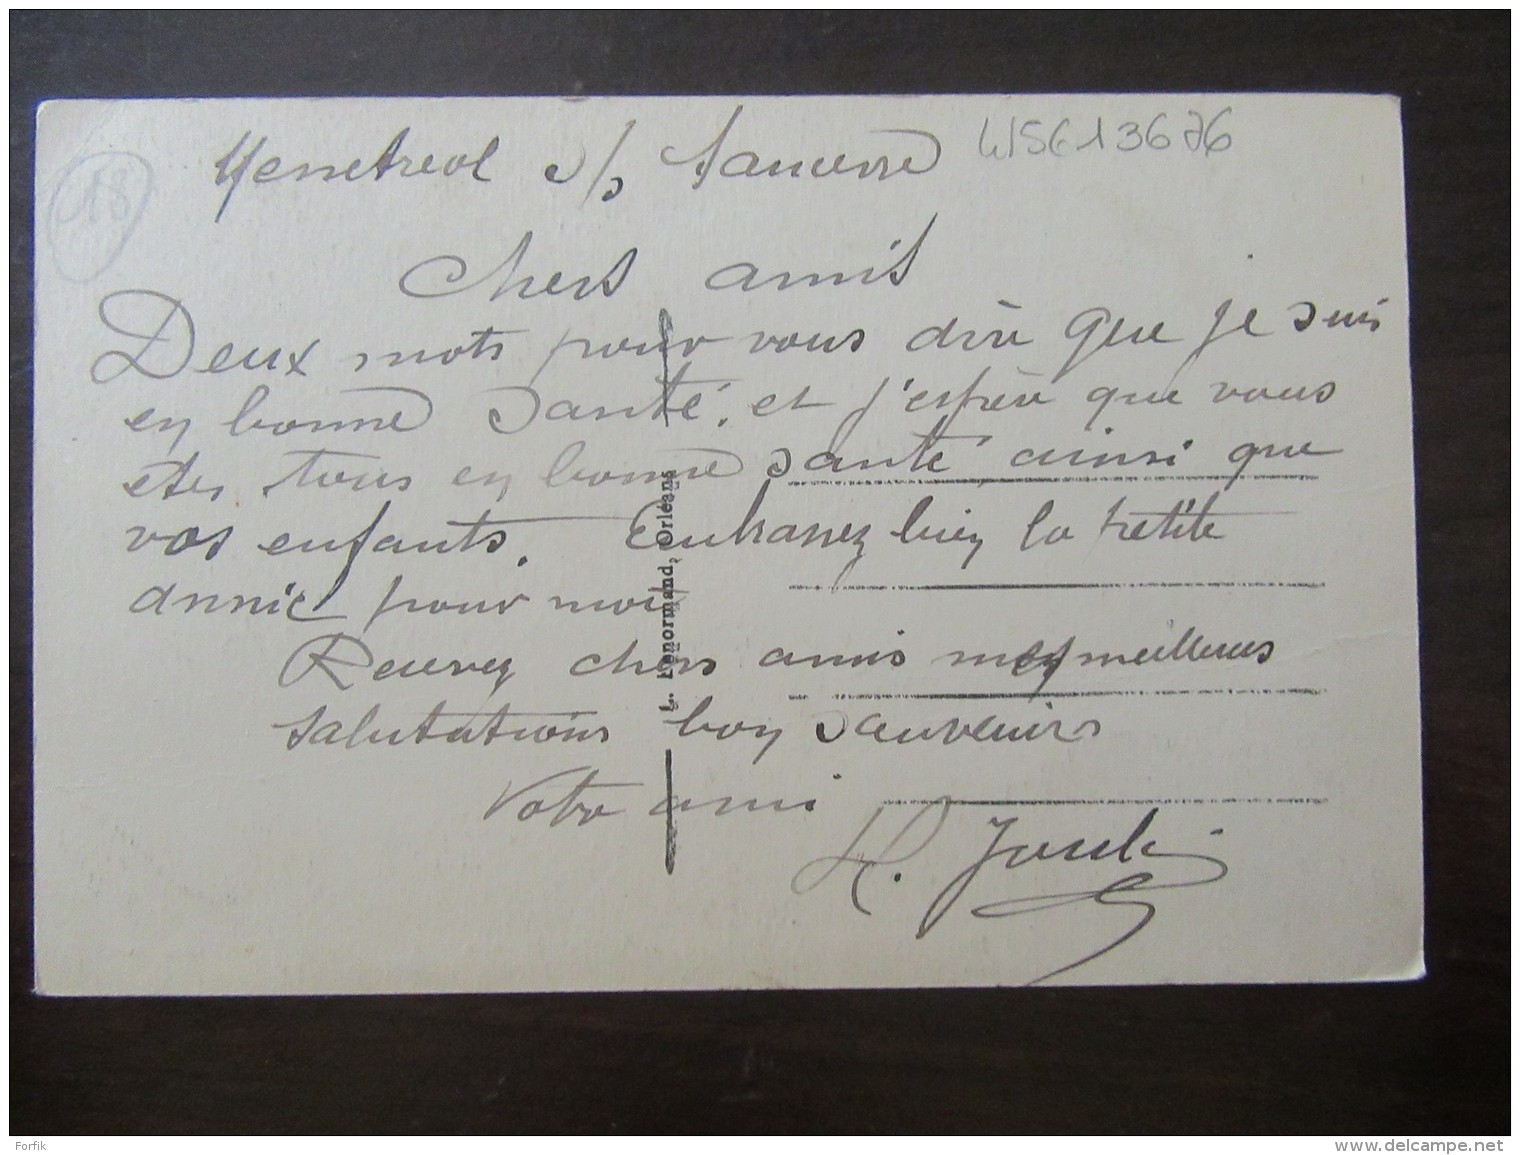 18
Menetreol s/s Sancerre
415613676
Chers amis
Deux mots pour vous dire que je suis
en bonne santé. et j'espère que vous
etes tous en bonne santé ainsi que
vos enfants. Embrassez bien la petite
annie pour moi
Recevez chers amis mes meilleures
salutations bon sauvenirs
Votre ami
H.
L. Lenormand, Orléans
Forfik
www.delcampe.net